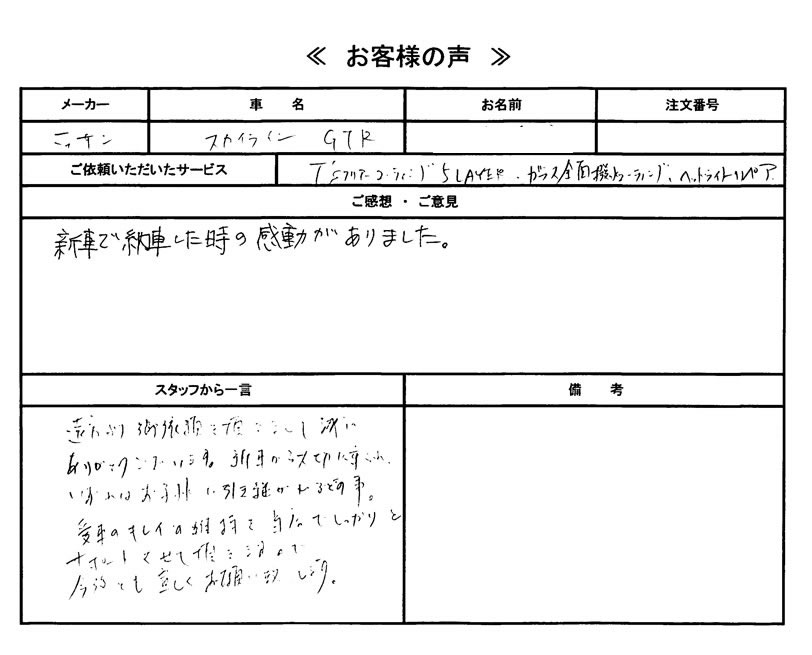 ≪ お客様の声 ≫
メーカー 車 名 お名前 注文番号
ニッサン スカイライン GTR
ご依頼いただいたサービス T'Sクリアーコーティング 5LAYER、ガラス全面撥水コーティング、ヘットライトリペア
ご感想・ご意見
新車で納車した時の感動がありました。
スタッフから一言 備 考
遠方より御依頼を頂きまして誠に
ありがとうございます。新車から大切に乗られ、
いずれはお子様に引き継がれるとの事。
愛車のキレイの維持を当店でしっかりと
サポートさせて頂きますので
今後とも宜しくお願い致します。